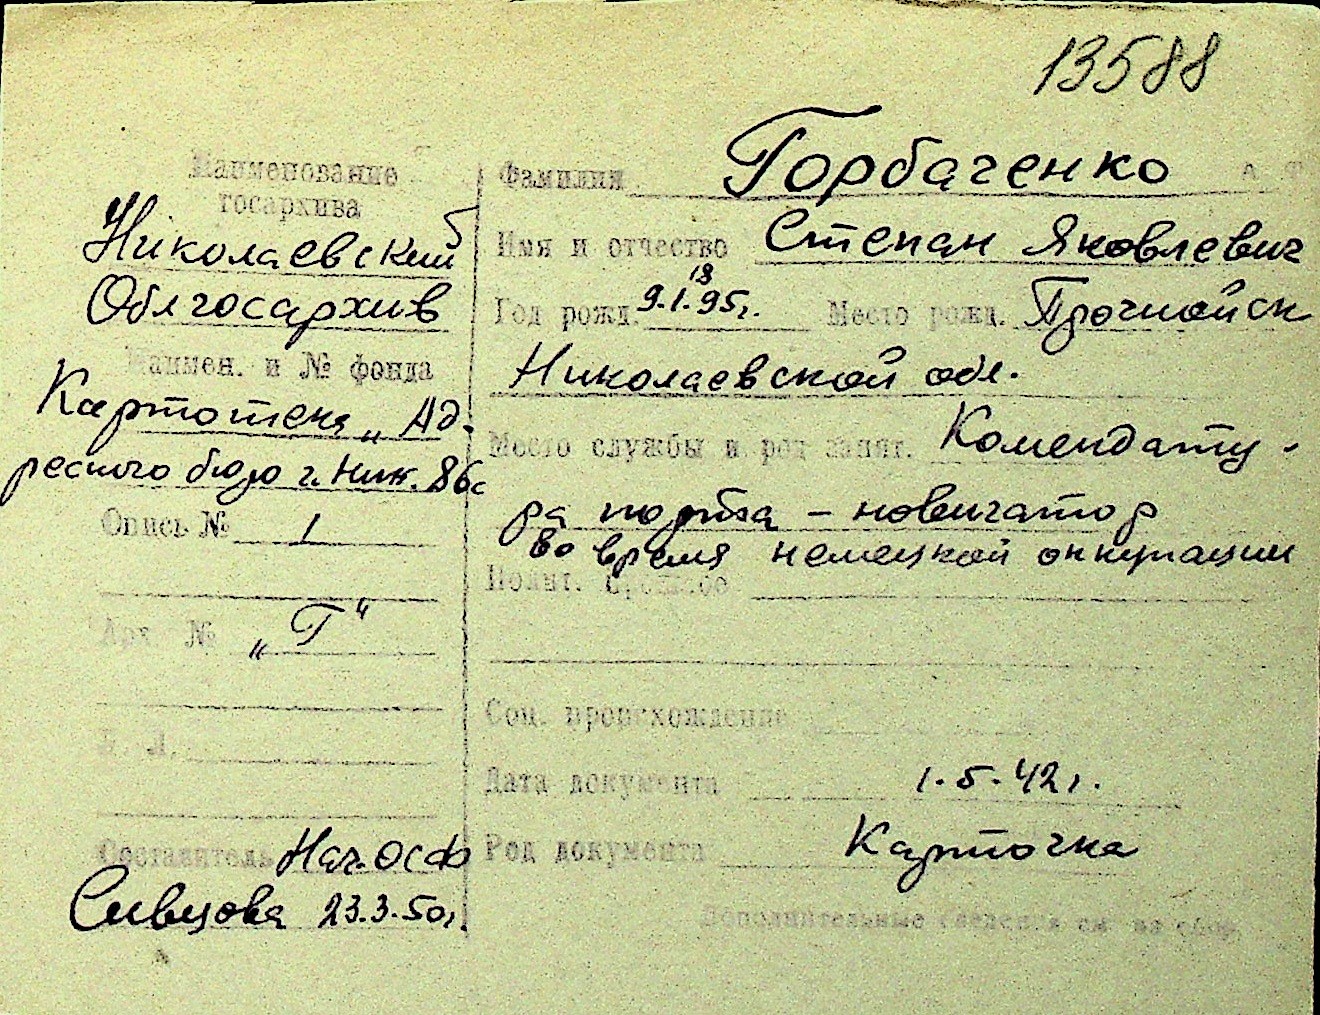 13588
Наименование
госархива
Николаевский
Облгосархив
Наимен. и № фонда
Картотека „Ад-
ресного бюро г. Ник.
Опись № 1
Арх. № „Г“
Л. Л.
Составитель Нач. ОСФ
Сивцова 23.3.50г.
Фамилия Горбаченко
Имя и отчество Степан Яковлевич
Год рожд. 9.1.1895г. Место рожд.
Николаевской обл.
Место службы и род занят. Комендату-
ра порта – новигатор
во время немецкой оккупации
Полит. прошлое
Соц. происхождение
Дата документа 1.5.42г.
Род документа Карточка
Дополнительные сведения см. на обор.